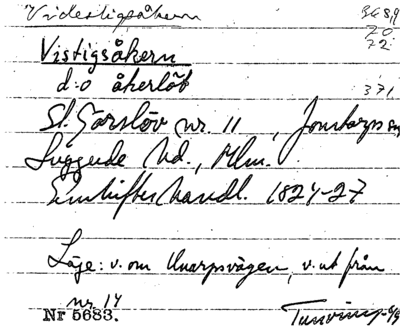 Videstigsåkern 3689
70
72
Vistigsåkern
d:o åkerlöt 371
St. Görslöv nr. 11, Jonstorps sn
Luggude hd., Mlm.
Enskifteshandl. 1824-27
Läge: v. om Unarpsvägen, v. ut från
nr. 14
Nr 5683. Tunving